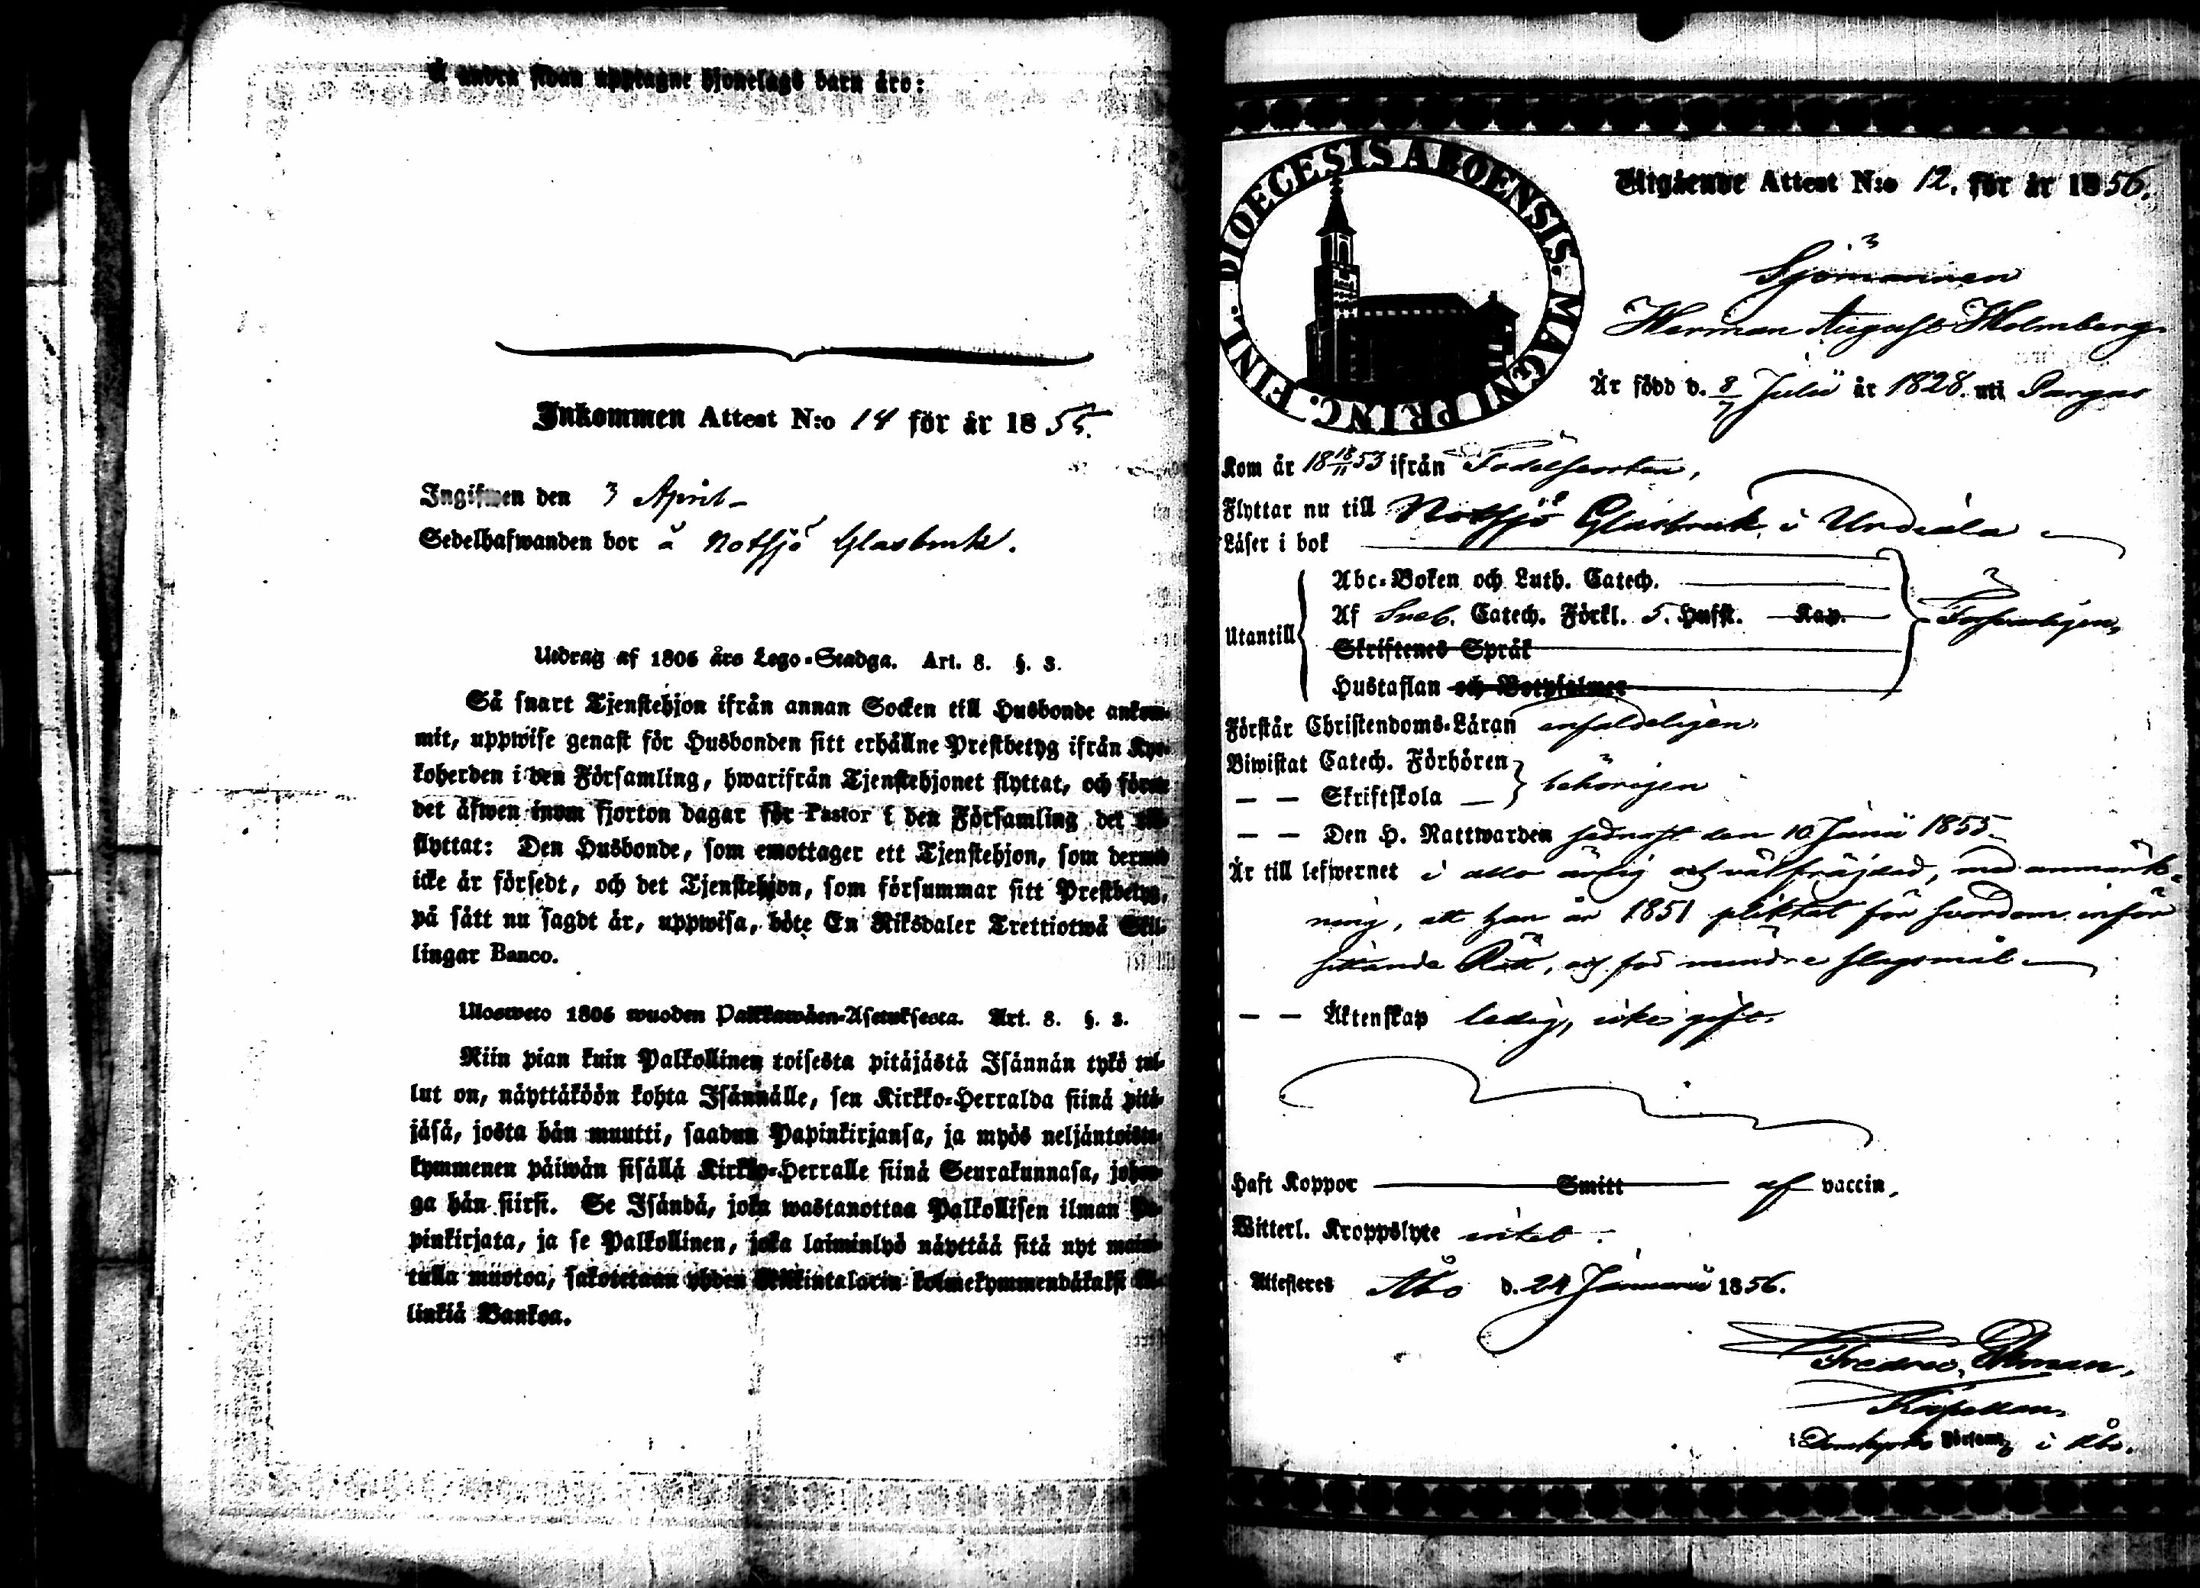 Å andra sidan upptagne hjonelags barn äro:
Inkommen Attest N:o 14 för år 1855.
Ingifwen den 3 April
Sedelhafwanden bor å Notsjö Glasbruk.
Utdrag af 1805 års Lego-Stadga. Art. 8. §. 3.
Så snart Tjenstehjon ifrån annan Socken till Husbonde ankom-
mit, uppwise genast för Husbonden sitt erhållne Prestbetyg ifrån Kyr-
koherden i den Församling, hwarifrån Tjenstehjonet flyttat, och förete
det äfwen inom fjorton dagar för Pastor i den Församling det till-
flyttat: Den Husbonde, som emottager ett Tjenstehjon, som dermed
icke är försedt, och det Tjenstehjon, som försummar sitt Prestbetyg,
på sätt nu sagdt är, uppwisa, böte En Riksdaler Trettiotwå Skil-
lingar Banco.
Ulosweto 1805 wuoden Palkkawäen-Asetuksesta. Art. 8. §. 3.
Niin pian kuin Palkollinen toisesta pitäjästä Isännän tykö tul-
lut on, näyttäköön kohta Isännälle, sen Kirkko-Herralda siinä pitä-
jäsä, josta hän muutti, saadun Papinkirjansa, ja myös neljäntoista-
kymmenen päiwän sisällä Kirkko-Herralle siinä Seurakunnasa, johon-
ga hän siirsi. Se Isändä, joka wastanottaa Palkollisen ilman Pa-
pinkirjata, ja se Palkollinen, joka laiminlyö näyttää sitä nyt maini-
tulla muotoa, sakotetaan yhden Riikintalarin kolmekymmendäkaksi kil-
linkiä Bankoa.
DIOECESIS ABOENSIS. MAGNI PRINC. FINL.
Utgående Attest N:o 12. för år 1856.
Sjömannen
Herman August Holmberg
Är född d. 8/7 Julii år 1828. uti Pargas
Kom år 18 18/11 53 ifrån Födelseorten,
Flyttar nu till Notsjö Glasbruk i Urdiala
Läser i bok
Abc-Boken och Luth. Catech.
Af Sveb. Catech. Förkl. 5. Hufst. Kap. Försvarligen,
Utantill
Skriftenes Språk
Hustaflan och Botpsalmer
Förstår Christendoms-Läran enfaldeligen.
Biwistat Catech. Förhören
— — Skriftskola — behörigen
— — Den H. Nattwarden sednast den 10 Junii 1855
Är till lefwernet i allo ärlig och välfräjdad, med anmärk-
ning, att han år 1851 pliktat för svordom inför
sittande Rätt, och för mindre slagsmål
— — Äktenskap ledig, icke gift.
Haft Koppor Smitt af vaccin,
Witterl. Kroppslyte intet.
Attesteres Åbo d. 24 Januarii 1856.
Kapellan
i Domkyrko Församl. i Åbo.